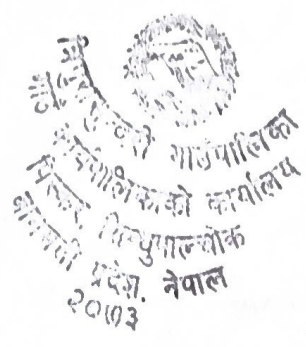 गाउँपालिका
गाउँपालिकाको कार्यालय
पिस्कर, सिन्धुपाल्चोक
बागमती प्रदेश, नेपाल
२०७३